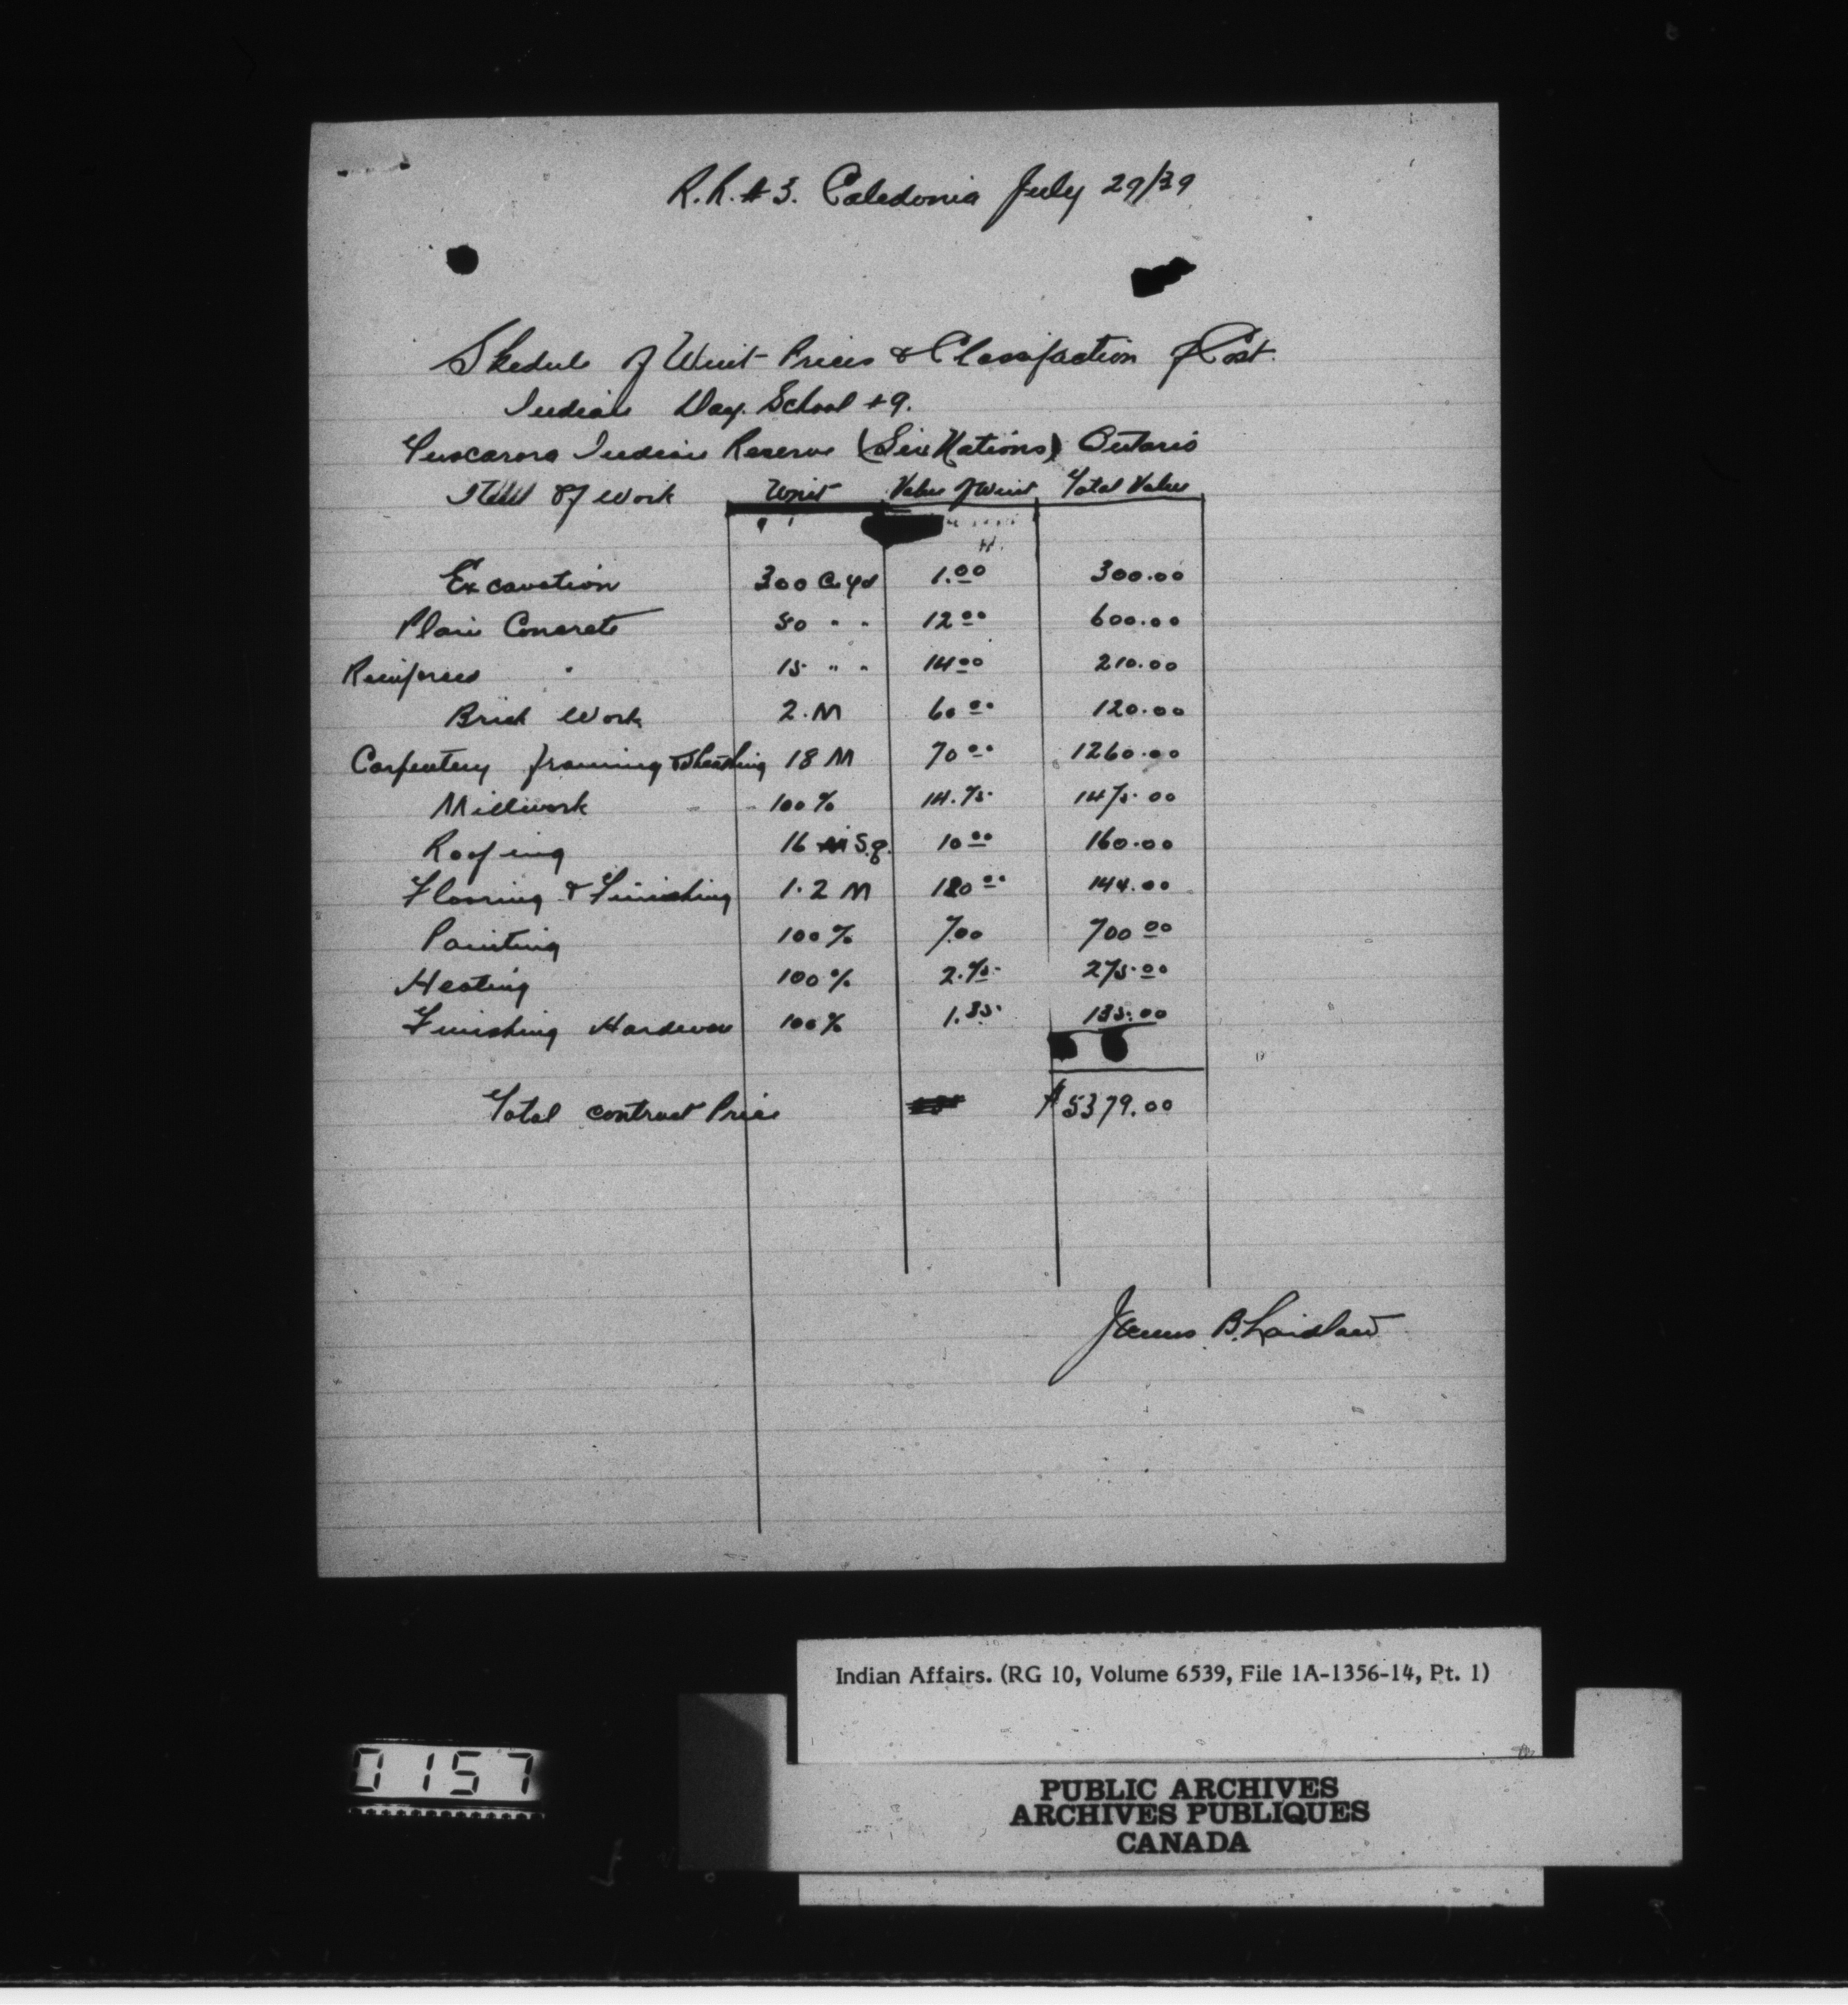 R.R.#3. Caledonia July 29/39
Skedule of Unit Prices & Classifaction of Cost.
Indian Day. School #9.
Tuscarora Indian Reserve (Six Nations) Ontario
Item Of Work Unit Value of Unit Total Value
Excavation 300 C. yd 1.00 300.00
Plain Concrete 50 " " 12 00 600.00
Reinforced " 15 " " 14 00 210.00
Brick Work 2. M 60 00 120.00
Carpentery framing & Sheathing 18 M 70 00 1260.00
Millwork 100 % 14.75 1475.00
Roofing 16 Sq. 10 00 160.00
Flooring & Finishing 1.2 M 120 00 144.00
Painting 100 % 7.00 700 00
Heating 100 % 2.75 275.00
Finishing Hardware 100 % 1.35 135.00
Total contract Price $5379.00
James B. Laidlaw
Indian Affairs. (RG 10, Volume 6539, File 1A-1356-14, Pt. 1)
0157
PUBLIC ARCHIVES
ARCHIVES PUBLIQUES
CANADA